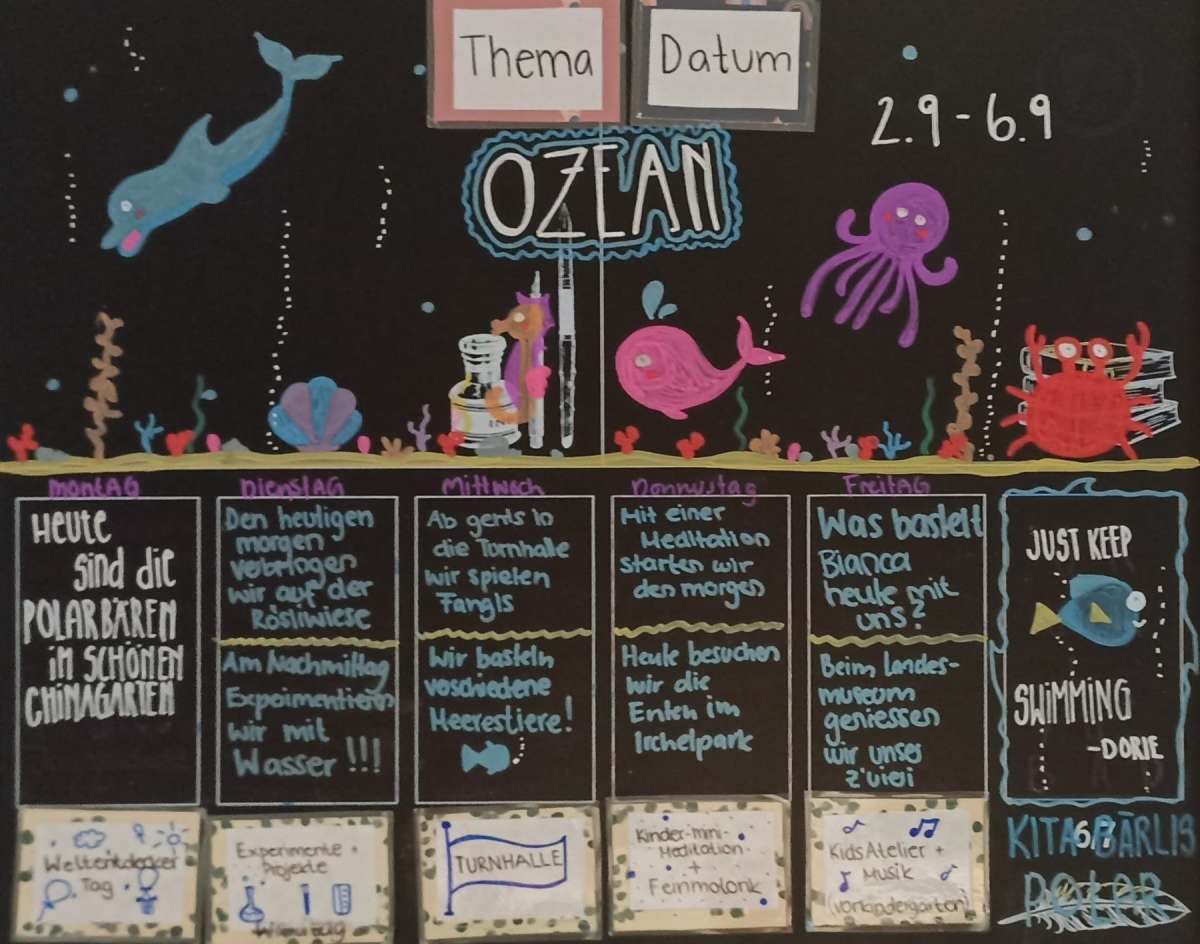 Thema
Datum
2.9 - 6.9
OZEAN
INK
Montag
Heute
sind die
Polarbären
im schönen
Chinagarten
Weltentdecker
Tag
Dienstag
Den heutigen
morgen
verbringen
wir auf der
Rösliwiese
Am Nachmittag
Expeimentieren
wir mit
Wasser !!!
Experimente +
Projekte
Mittwoch
Ab gehts in
die Turnhalle
wir spielen
Fangis
Wir basteln
veschiedene
Meerestiere!
TURNHALLE
Donnerstag
Mit einer
Meditation
starten wir
den morgen
Heute besuchen
wir die
Enten im
Irchelpark
Kinder-mini-
Meditation
+
Feinmotorik
Freitag
Was bastelt
Bianca
heute mit
uns?
Beim Landes-
museum
geniessen
wir unser
z'vieri
Kids Atelier +
Musik
(vorkindergarten)
JUST KEEP
SWIMMING
-DORIE
KITA BÄRLIS
6/7
POLAR